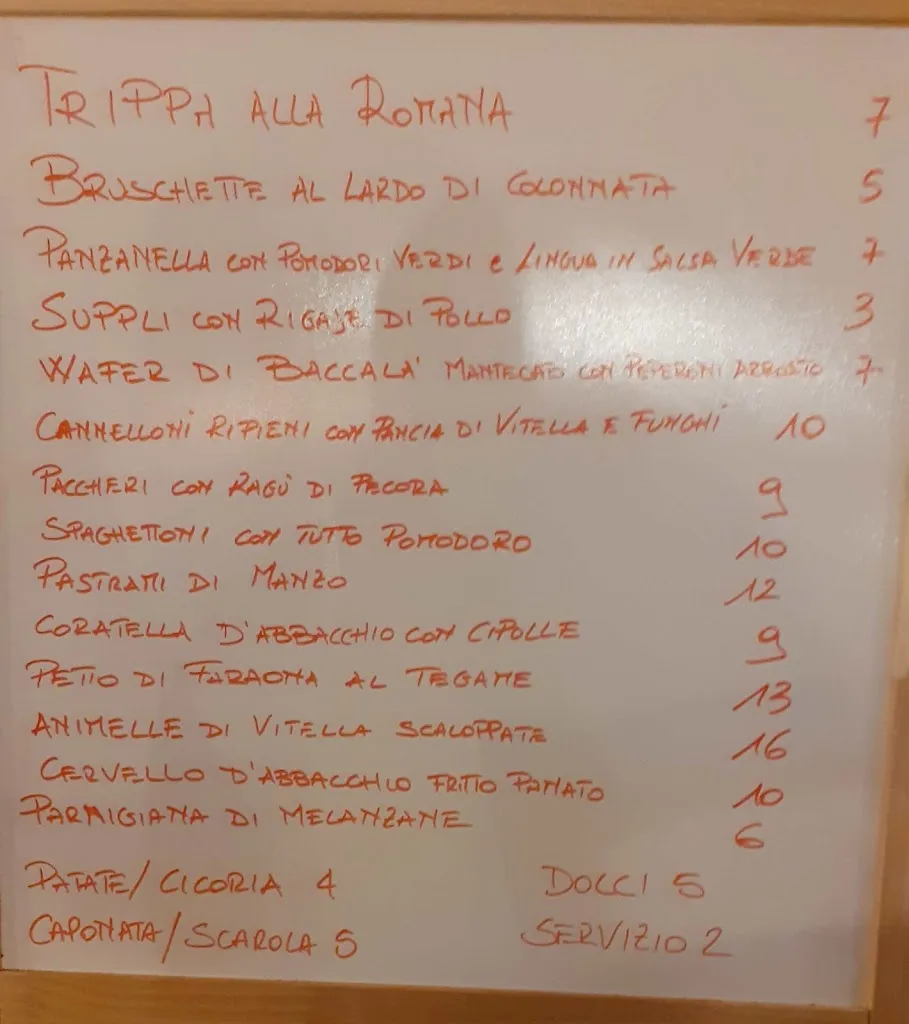 TRIPPA ALLA ROMANA 7
BRUSCHETTE AL LARDO DI COLONNATA 5
PANZANELLA CON POMODORI VERDI e LINGUA IN SALSA VERDE 7
SUPPLI CON RIGAJE DI POLLO 3
WAFER DI BACCALA' MANTECATO CON PEPERONI ARROSTO 7
CANNELLONI RIPIENI CON PANCIA DI VITELLA E FUNGHI 10
PACCHERI CON RAGÙ DI PECORA 9
SPAGHETTONI CON TUTTO POMODORO 10
PASTRAMI DI MANZO 12
CORATELLA D'ABBACCHIO CON CIPOLLE 9
PETTO DI FARAONA AL TEGAME 13
ANIMELLE DI VITELLA SCALOPPATE 16
CERVELLO D'ABBACCHIO FRITTO PANATO 10
PARMIGIANA DI MELANZANE 6
PATATE/CICORIA 4 DOLCI 5
CAPONATA/SCAROLA 5 SERVIZIO 2